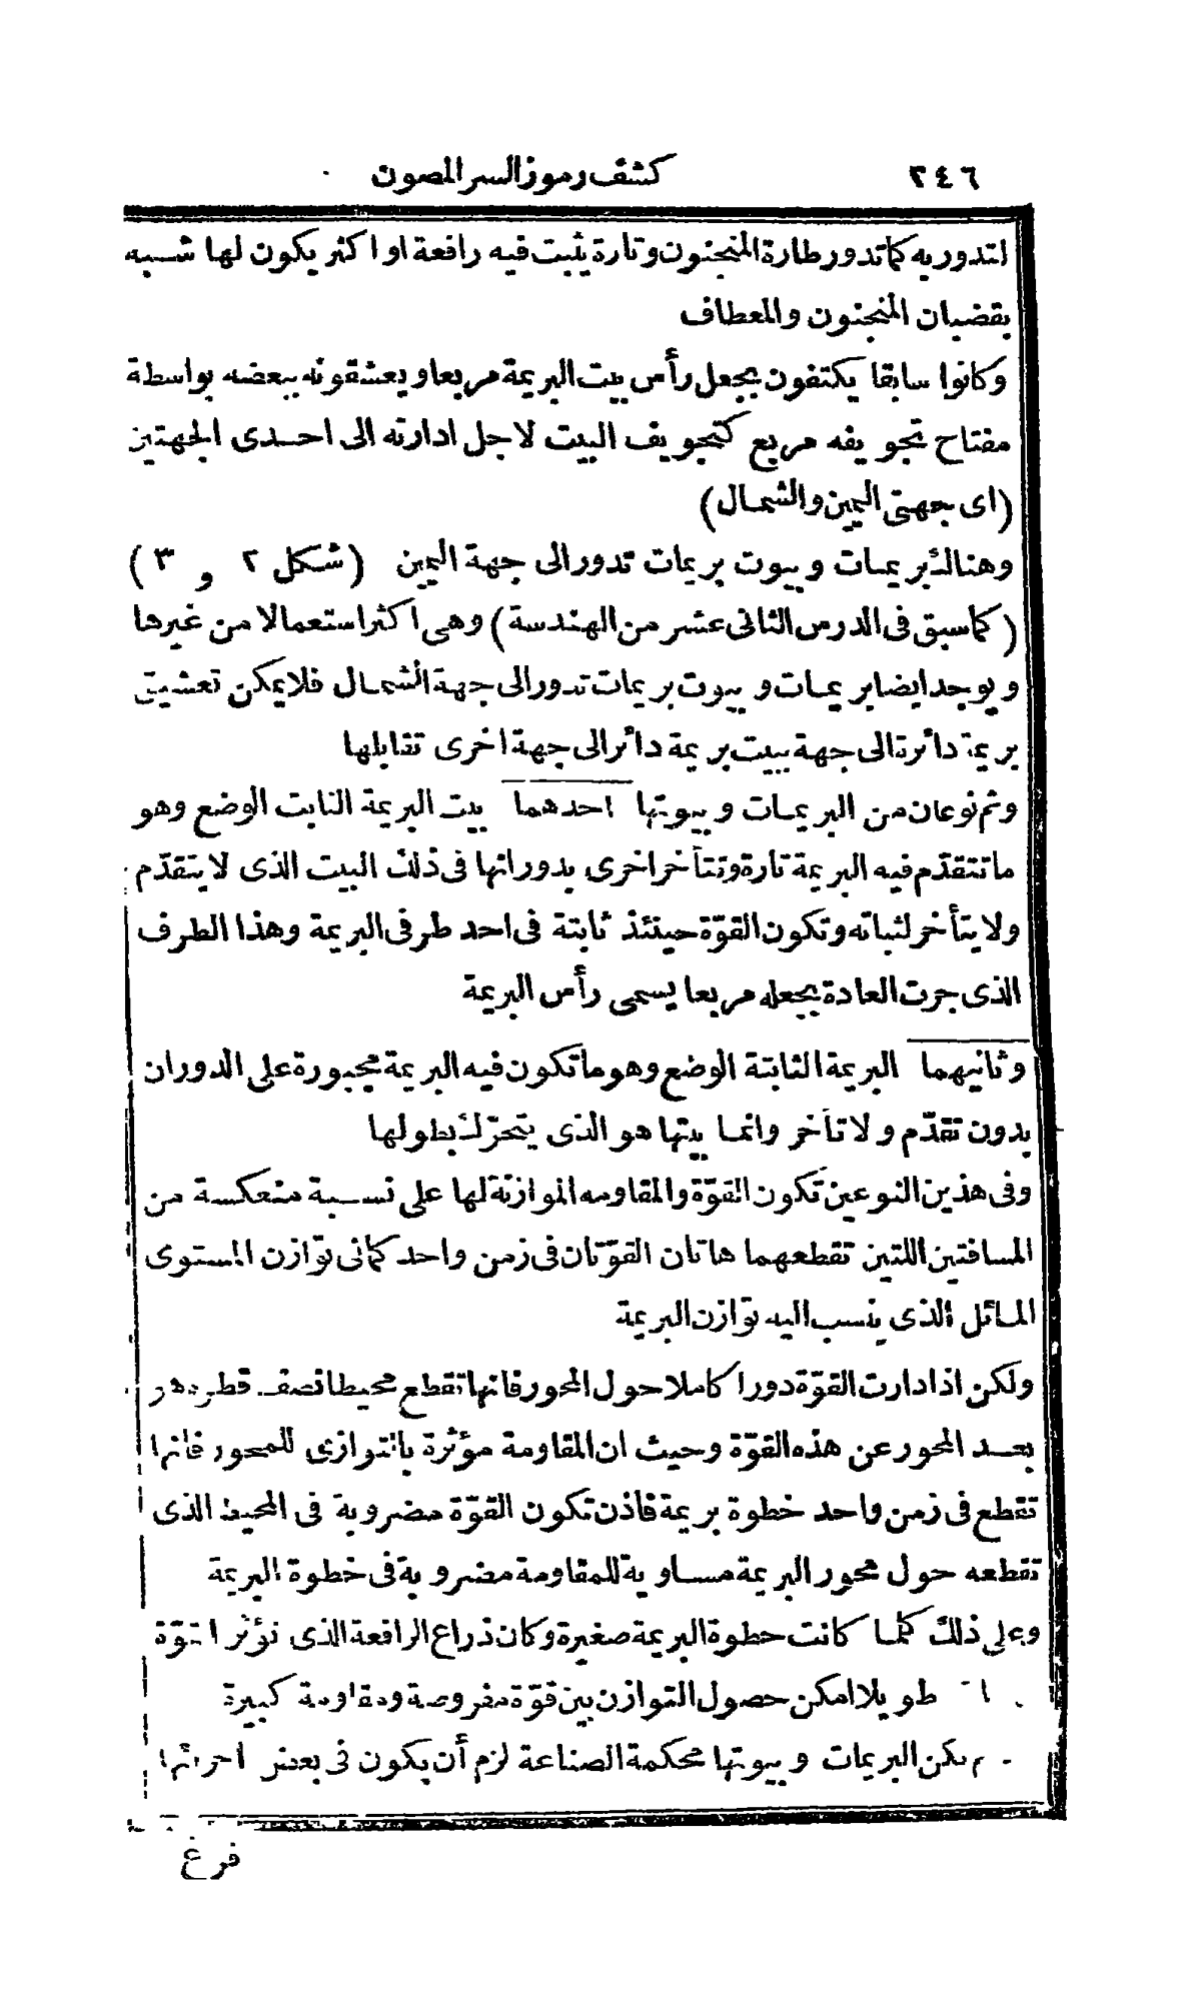 ٢٤٦ كشف رموز السر المصون
لتدور به كما تدور طارة المنجنون وتارة يثبت فيه رافعة او اكثر يكون لها شبه
بقضبان المنجنون والمعطاف
وكانوا سابقا يكتفون بجعل رأس بيت البريمة مربعا ويعشقونه ببعضه بواسطة
مفتاح تجويفه مربع كتجويف البيت لاجل ادارته الى احدى الجهتين
(اى جهتى اليمين والشمال)
وهناك بريمات وبيوت بريمات تدور الى جهة اليمين (شكل ٢ و ٣)
(كما سبق فى الدرس الثانى عشر من الهندسة) وهى اكثر استعمالا من غيرها
ويوجد ايضا بريمات وبيوت بريمات تدور الى جهة الشمال فلا يمكن تعشيق
بريمة دائرة الى جهة ببيت بريمة دائر الى جهة اخرى تقابلها
وثم نوعان من البريمات وبيوتها احدهما بيت البريمة الثابت الوضع وهو
ما تتقدّم فيه البريمة تارة وتتأخر اخرى بدورانها فى ذلك البيت الذى لا يتقدّم
ولا يتأخر لثباته وتكون القوّة حينئذ ثابتة فى احد طرفى البريمة وهذا الطرف
الذى جرت العادة بجعله مربعا يسمى رأس البريمة
وثانيهما البريمة الثابتة الوضع وهو ما تكون فيه البريمة مجبورة على الدوران
بدون تقدّم ولا تأخر وانما بيتها هو الذى يتحرّك بطولها
وفى هذين النوعين تكون القوّة والمقاومه الموازنة لها على نسبة منعكسة من
المسافتين اللتين تقطعهما هاتان القوّتان فى زمن واحد كما فى توازن المستوى
المائل الذى ينسب اليه توازن البريمة
ولكن اذا دارت القوّة دورا كاملا حول المحور فانها تقطع محيطا نصف قطره هو
بعد المحور عن هذه القوّة وحيث ان المقاومة مؤثرة بالتوازى للمحور فانها
تقطع فى زمن واحد خطوة بريمة فاذن تكون القوّة مضروبة فى المحيط الذى
تقطعه حول محور البريمة مساوية للمقاومة مضروبة فى خطوة البريمة
وعلى ذلك كلما كانت خطوة البريمة صغيرة وكان ذراع الرافعة الذى تؤثر القوّة
طويلا امكن حصول التوازن بين قوّة مفروضة ومقاومة كبيرة
تكن البريمات وبيوتها محكمة الصناعة لزم أن يكون فى بعض اجزائها
فرغ